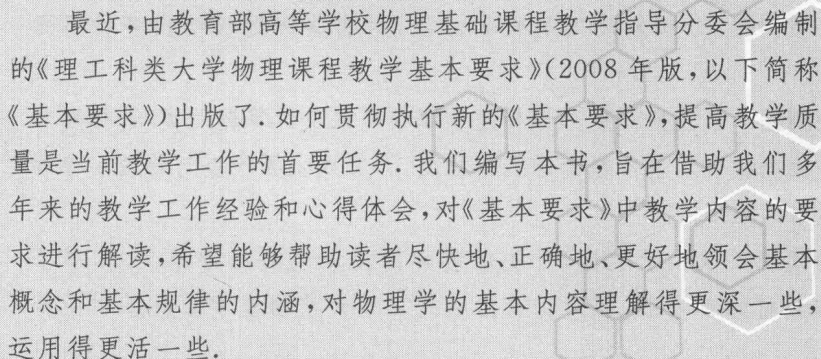 最近,由教育部高等学校物理基础课程教学指导分委会编制
的《理工科类大学物理课程教学基本要求》(2008 年版,以下简称
《基本要求》)出版了.如何贯彻执行新的《基本要求》,提高教学质
量是当前教学工作的首要任务.我们编写本书,旨在借助我们多
年来的教学工作经验和心得体会,对《基本要求》中教学内容的要
求进行解读,希望能够帮助读者尽快地、正确地、更好地领会基本
概念和基本规律的内涵,对物理学的基本内容理解得更深一些,
运用得更活一些.